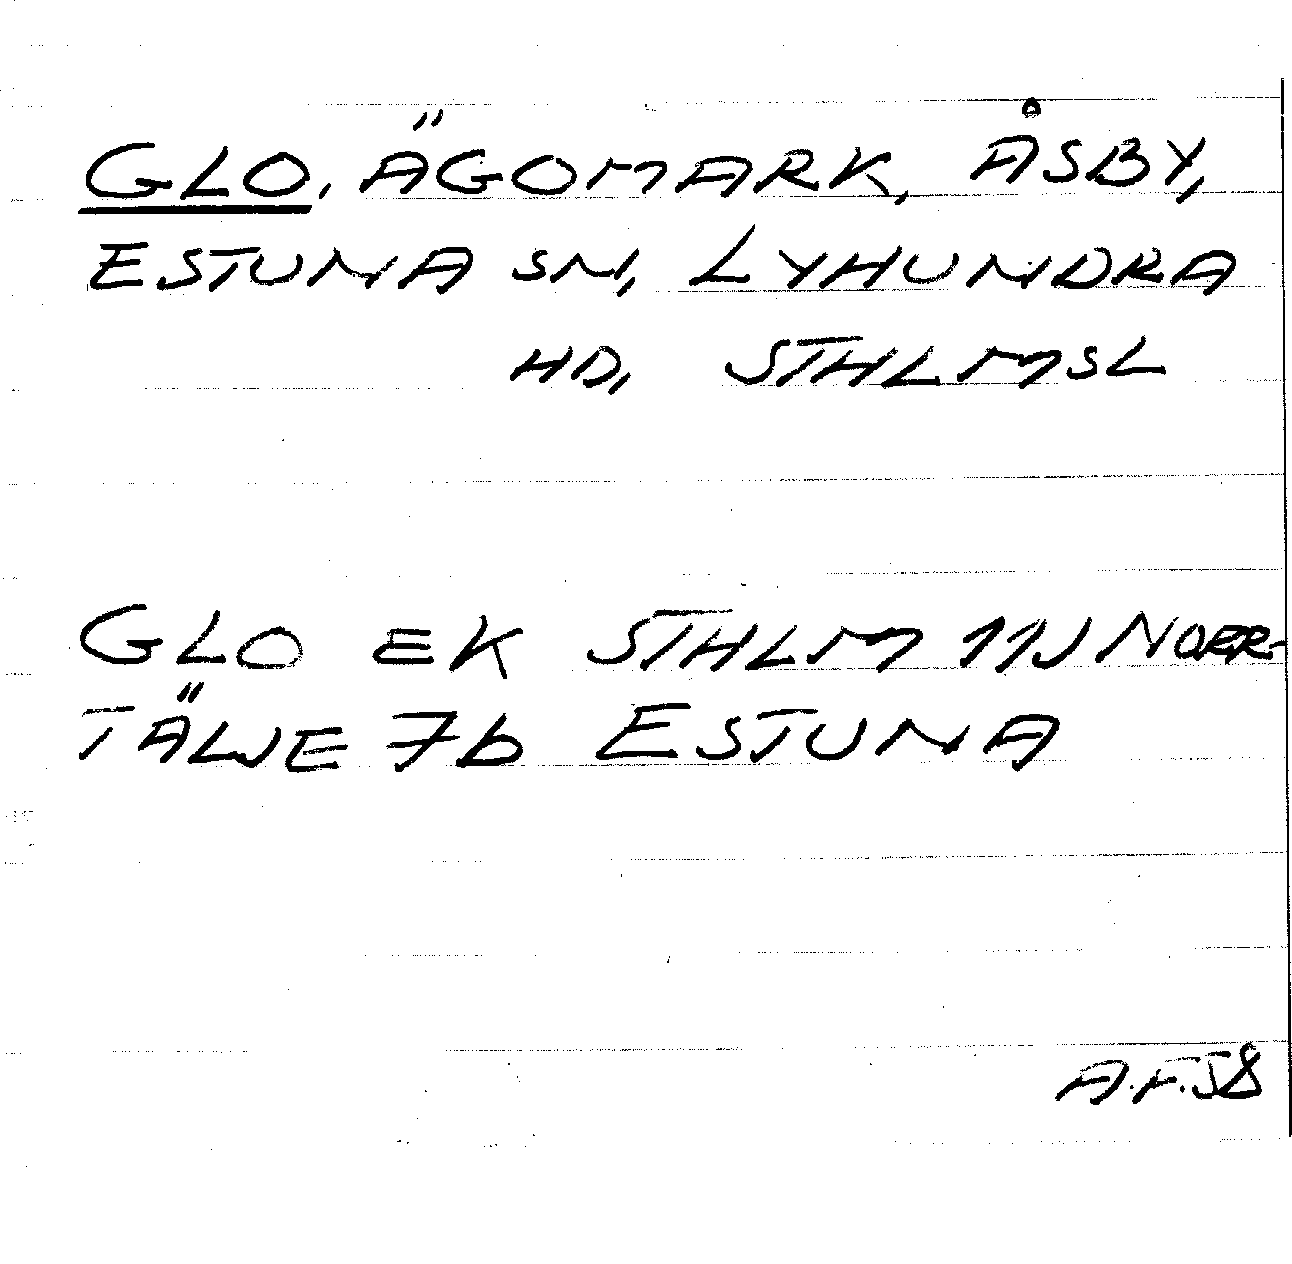 GLO, ÄGOMARK, ÅSBY,
ESTUNA SN, LYHUNDRA
HD, STHLMSL
GLO EK STHLM 11J NORR-
TÄLJE 7b ESTUNA
A.F.58